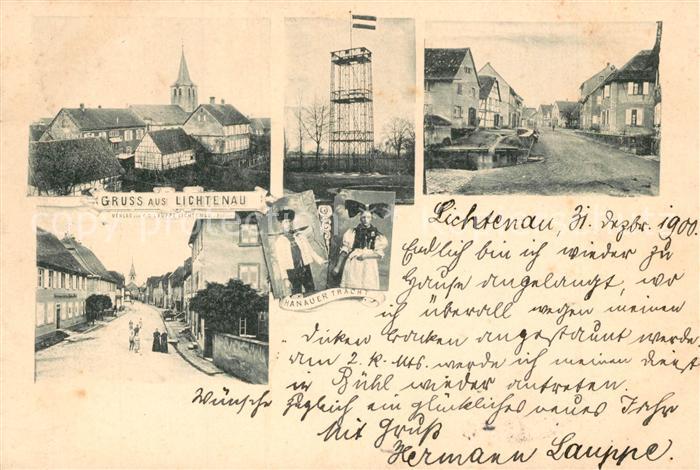 GRUSS AUS LICHTENAU
HANAUER TRACHT
Lichtenau, 31. Dezbr. 1900.
Endlich bin ich wieder zu
Hause angelangt, wo
ich überall wegen meinen
Diken Backen angestaunt werde,
am 2. k. Mts. werde ich meinen Dienst
in Bühl wieder antreten.
Wünsche zugleich ein glückliches neues Jahr
Mit Gruß
Hermann Lauppe.